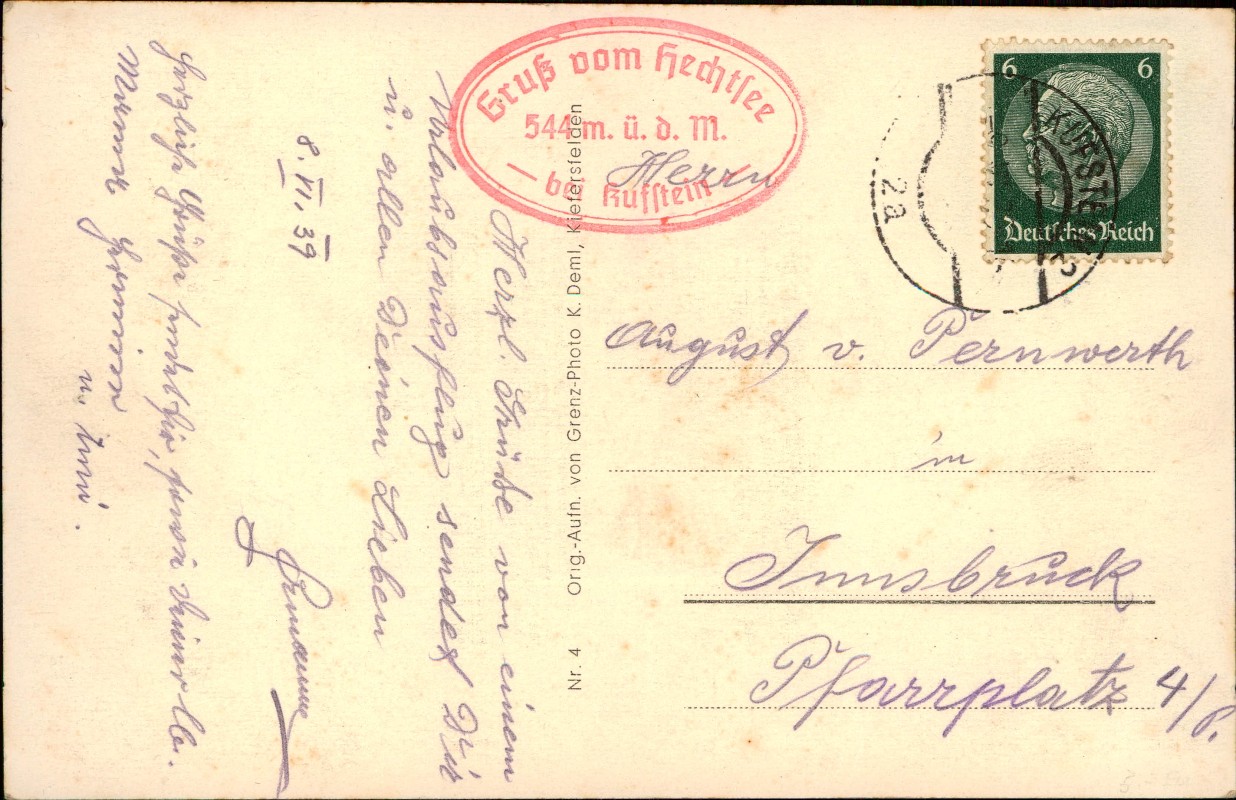 Gruß vom Hechtsee
544 m. ü. d. M.
bei Kufstein
6 6
Deutsches Reich
KUFSTEIN
2a
8. VI. 39
Herzl. Grüße von einem
Urlaubsausflug sendet Dir
u. allen Deinen Lieben
Hermann
Herzliche Grüße sendet Dir, sowie Deinen Lb.
u. Toni.
Nr. 4 Orig.-Aufn. von Grenz-Photo K. Deml, Kiefersfelden
Herrn
August v. Pernwerth
in
Innsbruck
Pfarrplatz 4/P.